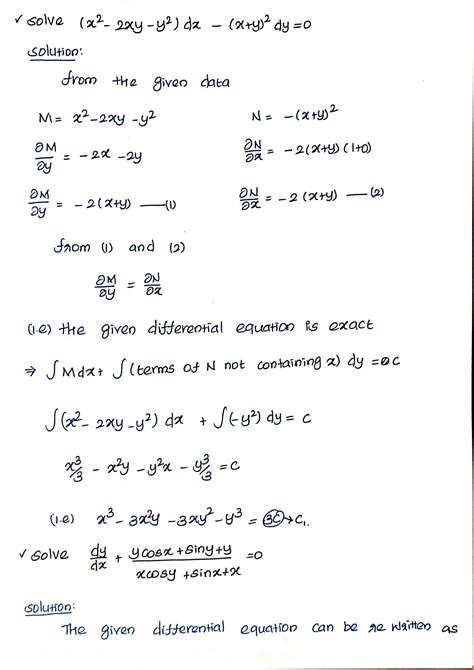 ✓ solve (x² - 2xy - y²) dx - (x+y)² dy = 0
solution:
from the given data
M = x² - 2xy - y² N = -(x+y)²
∂M/∂y = -2x - 2y ∂N/∂x = -2(x+y) (1+0)
∂M/∂y = -2(x+y) —(1) ∂N/∂x = -2(x+y) —(2)
from (1) and (2)
∂M/∂y = ∂N/∂x
(i.e) the given differential equation is exact
⇒ ∫Mdx + ∫(terms of N not containing x) dy = c
∫(x² - 2xy - y²) dx + ∫(-y²) dy = c
x³/3 - x²y - y²x - y³/3 = c
(i.e) x³ - 3x²y - 3xy² - y³ = 3c → c₁.
✓ solve dy/dx + (ycosx + siny + y)/(xcosy + sinx + x) = 0
solution:
The given differential equation can be re written as